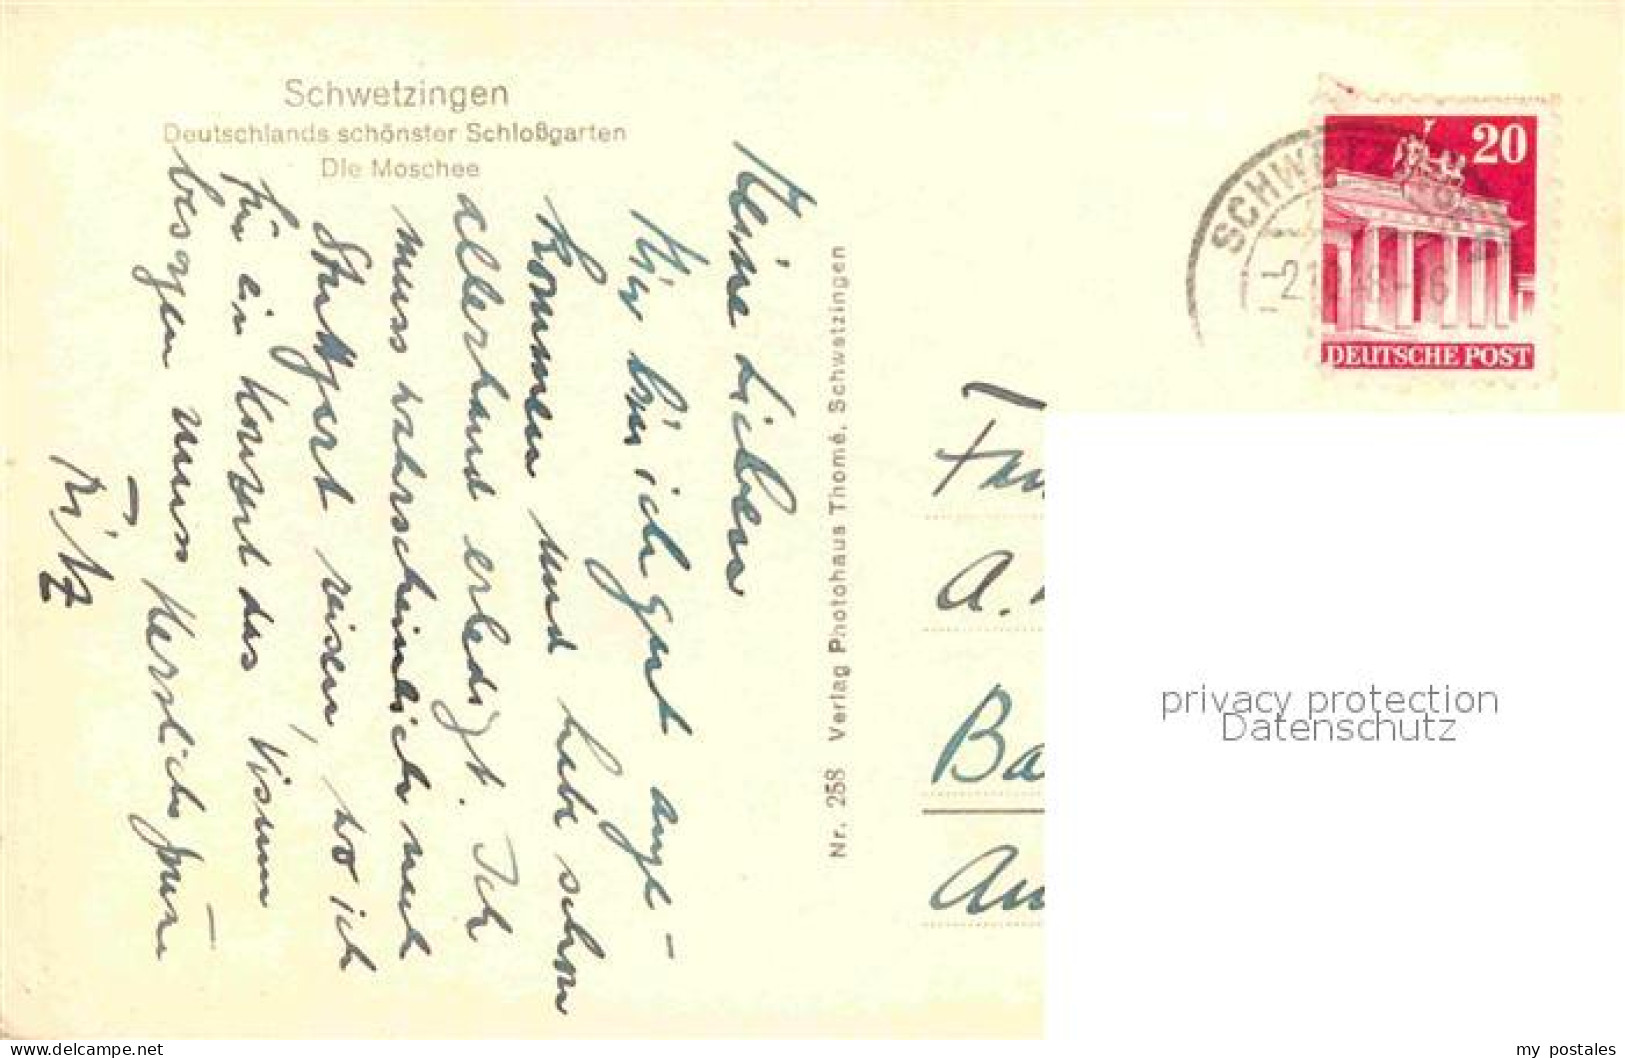 Schwetzingen
Deutschlands schönster Schloßgarten
Die Moschee
Meine Lieben
Hier bin ich gut ange-
kommen und habe schon
allerhand erledigt. Ich
muss wahrscheinlich nach
Stuttgart reisen, wo ich
für ein Konzert das Visum
besorgen muss. Herzlichst
Fritz
Nr. 258 Verlag Photohaus Thomé, Schwetzingen
SCHWETZINGEN
20
DEUTSCHE POST
A.
Ba
privacy protection
Datenschutz
my postales
www.delcampe.net